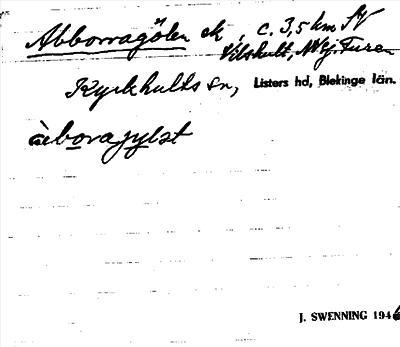 Abborragölen ek, c. 3,5 km SV
Vilshult, NV j. Furen
Kyrkhults sn, Listers hd, Blekinge län.
àboragyļst
J. SWENNING 1946